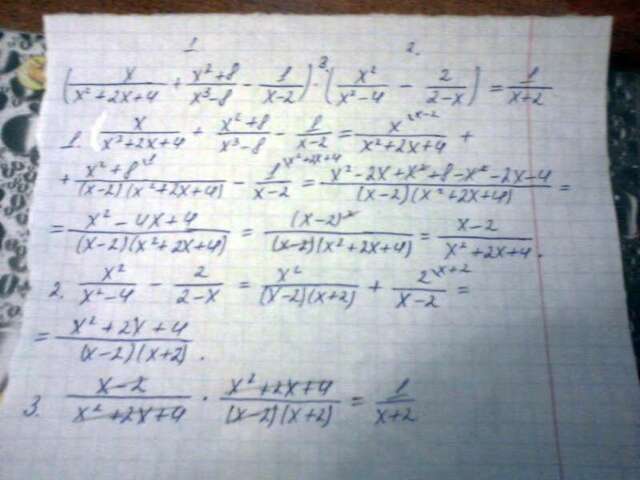 1 3. 2.
(x/(x²+2x+4) + (x²+8)/(x³-8) - 1/(x-2)) · (x²/(x²-4) - 2/(2-x)) = 1/(x+2)
1. (x/(x²+2x+4) + (x²+8)/(x³-8) - 1/(x-2) = x^(x-2)/(x²+2x+4) +
+ (x²+8^(1))/((x-2)(x²+2x+4)) - 1^(x²+2x+4)/(x-2) = (x²-2x+x²+8-x²-2x-4)/((x-2)(x²+2x+4)) =
= (x²-4x+4)/((x-2)(x²+2x+4)) = (x-2)²/((x-2)(x²+2x+4)) = (x-2)/(x²+2x+4).
2. x²/(x²-4) - 2/(2-x) = x²/((x-2)(x+2)) + 2^(x+2)/(x-2) =
= (x²+2x+4)/((x-2)(x+2)).
3. (x-2)/(x²+2x+4) · (x²+2x+4)/((x-2)(x+2)) = 1/(x+2)